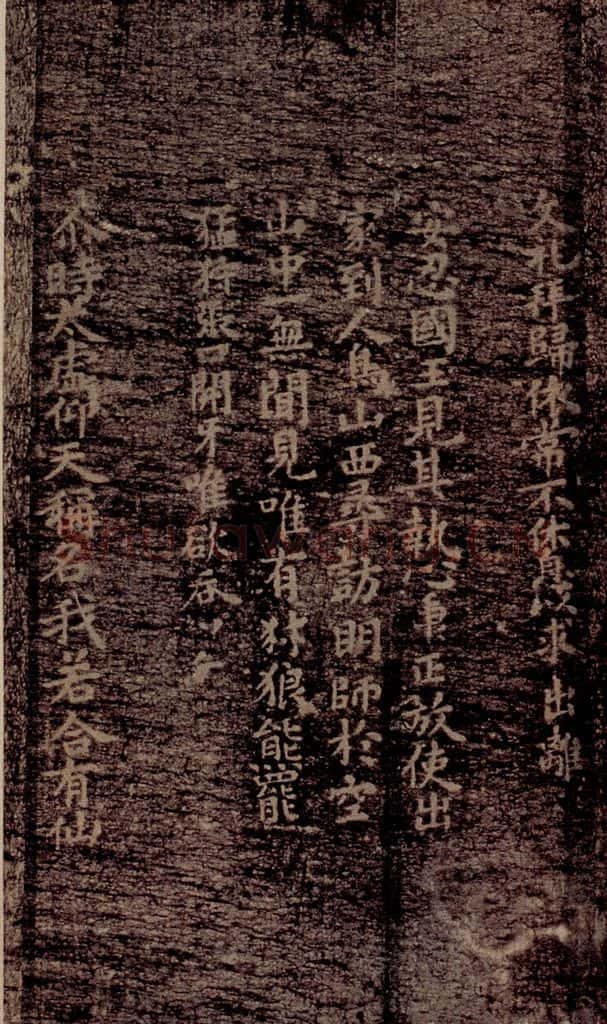 礼拜歸依常不休息以求出離
安忍國王見其執心貞正放使出
家到人鳥山西尋訪明師於空
山中一無聞見唯有豺狼能羆
猛狩張口開牙唯欲吞
時太虛仰天稱名我若合有仙